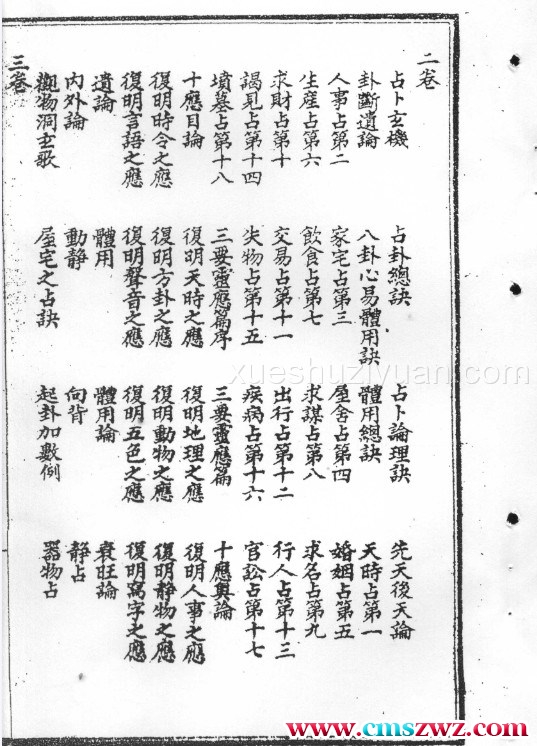 二卷
占卜玄機 占卦總訣 占卜論理訣 先天後天論
卦斷遺論 八卦心易體用訣 體用總訣 天時占第一
人事占第二 家宅占第三 屋舍占第四 婚姻占第五
生產占第六 飲食占第七 求謀占第八 求名占第九
求財占第十 交易占第十一 出行占第十二 行人占第十三
謁見占第十四 失物占第十五 疾病占第十六 官訟占第十七
墳墓占第十八 三要靈應篇序 三要靈應篇 十應奧論
十應目論 復明天時之應 復明地理之應 復明人事之應
復明時令之應 復明方卦之應 復明動物之應 復明靜物之應
復明言語之應 復明聲音之應 復明五色之應 復明寫字之應
遺論 體用 體用論 衰旺論
內外論 動静 向背 静占
觀物洞玄歌 屋宅之占訣 起卦加數例 器物占
三卷
xueshuziyuan.com
www.cmszwz.com